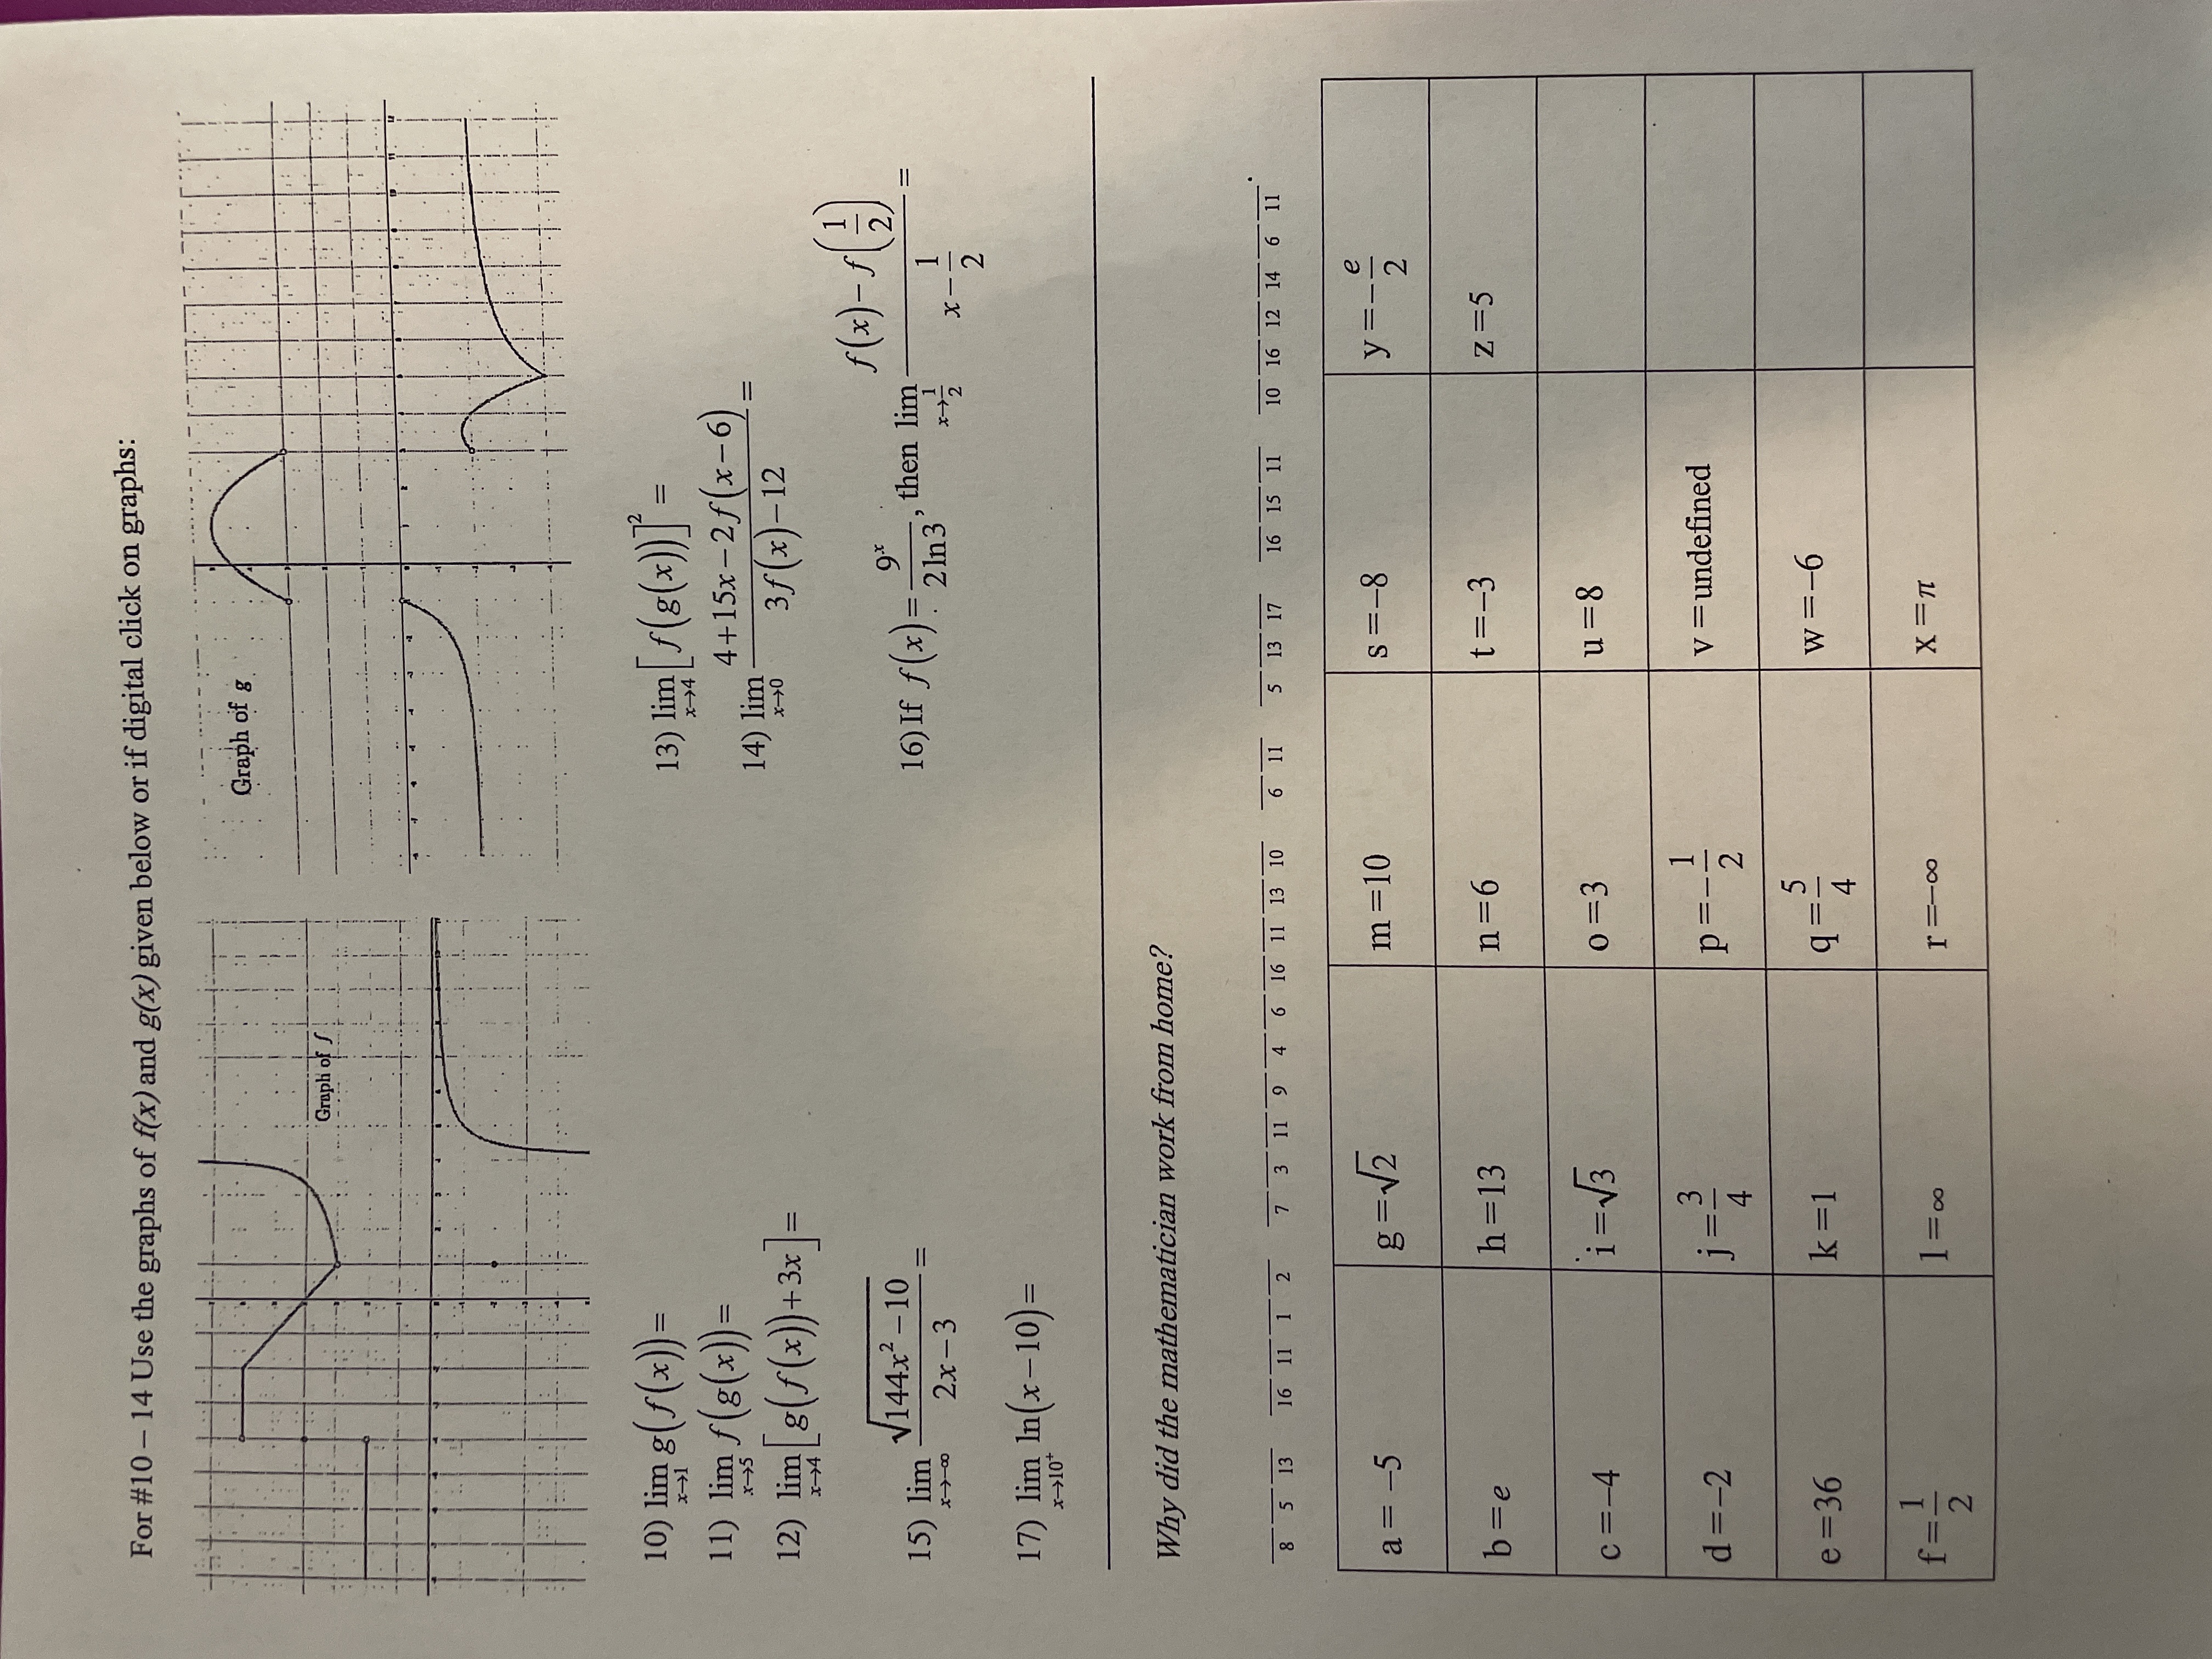 For #10 – 14 Use the graphs of f(x) and g(x) given below or if digital click on graphs:
Graph of f
Graph of g
10) lim x→1 g(f(x))=
11) lim x→5 f(g(x))=
12) lim x→4 [g(f(x))+3x]=
13) lim x→4 [f(g(x))]² =
14) lim x→0 (4+15x−2f(x−6))/(3f(x)−12) =
15) lim x→−∞ √(144x²−10)/(2x−3) =
16) If f(x)= 9ˣ/(2ln3), then lim x→1/2 (f(x)−f(1/2))/(x−1/2) =
17) lim x→10⁺ ln(x−10)=
Why did the mathematician work from home?
8 5 13 16 11 1 2 7 3 11 9 4 6 16 11 13 10 6 11 5 13 17 16 15 11 10 16 12 14 6 11 .
a = −5 g=√2 m=10 s=−8 y=−e/2
b=e h=13 n=6 t=−3 z=5
c=−4 i=√3 o=3 u=8
d=−2 j=3/4 p=−1/2 v=undefined
e=36 k=1 q=5/4 w=−6
f=1/2 l=∞ r=−∞ x=π